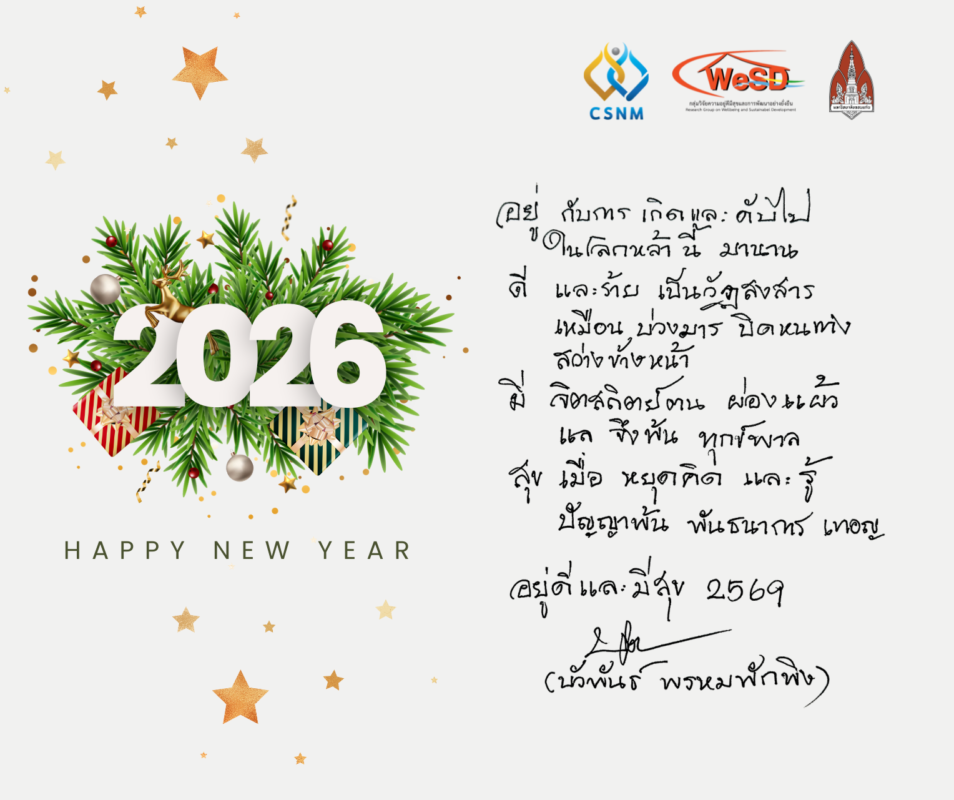 CSNM
WeSD
กลุ่มวิจัยความอยู่ดีมีสุขและการพัฒนาอย่างยั่งยืน
Research Group on Wellbeing and Sustainable Development
มหาวิทยาลัยขอนแก่น
2026
HAPPY NEW YEAR
อยู่ กับการ เกิดและ ดับไป
ในโลกหล้า นี้ มานาน
ดี และร้าย เป็นวัฏสงสาร
เหมือน บ่วงมาร ปิดหนทาง
สว่างข้างหน้า
มี จิตสถิตย์ตน ผ่องแผ้ว
แล จึงพ้น ทุกข์พาล
สุข เมื่อ หยุดคิด และ รู้
ปัญญาพ้น พันธนาการ เทอญ
อยู่ดีและมีสุข 2569
(บัวพันธ์ พรหมพักพิง)